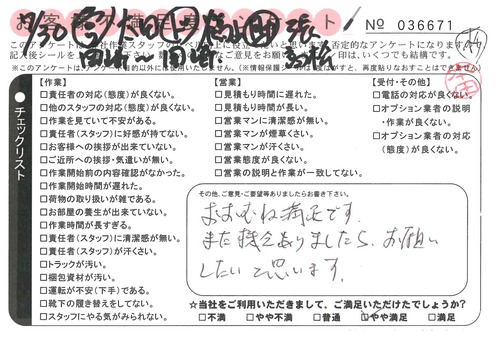 No 036671
【作業】
□責任者の対応(態度)が良くない。
□他のスタッフの対応(態度)が良くない。
□作業を見ていて不安がある。
□責任者(スタッフ)に好感が持てない。
□お客様への挨拶が出来ていない。
□ご近所への挨拶・気遣いが無い。
□作業開始前の内容確認がなかった。
□作業開始時間が遅れた。
□荷物の取り扱いが雑である。
□お部屋の養生が出来ていない。
□作業時間が長すぎる。
□責任者(スタッフ)に清潔感が無い。
□責任者(スタッフ)が汗くさい。
□トラックが汚い。
□梱包資材が汚い。
□運転が不安(下手)である。
□靴下の履き替えをしてない。
□スタッフにやる気がみられない。
【営業】
□見積もり時間に遅れた。
□見積もり時間が長い。
□営業マンに清潔感が無い。
□営業マンが煙草くさい。
□営業マンが汗くさい。
□営業態度が良くない。
□営業の説明と作業が一致してない。
【受付・その他】
□電話の対応が良くない。
□オプション業者の説明
・作業が良くない。
□オプション業者の対応
(態度)が良くない。
チェックリスト
その他、ご意見・ご要望等ありましたらお書き下さい。
おおむね満足です。
また機会ありましたら、お願い
したいと思います。
☆当社をご利用いただきまして、ご満足いただけたでしょうか?
□不満 □やや不満 □普通 □やや満足 □満足